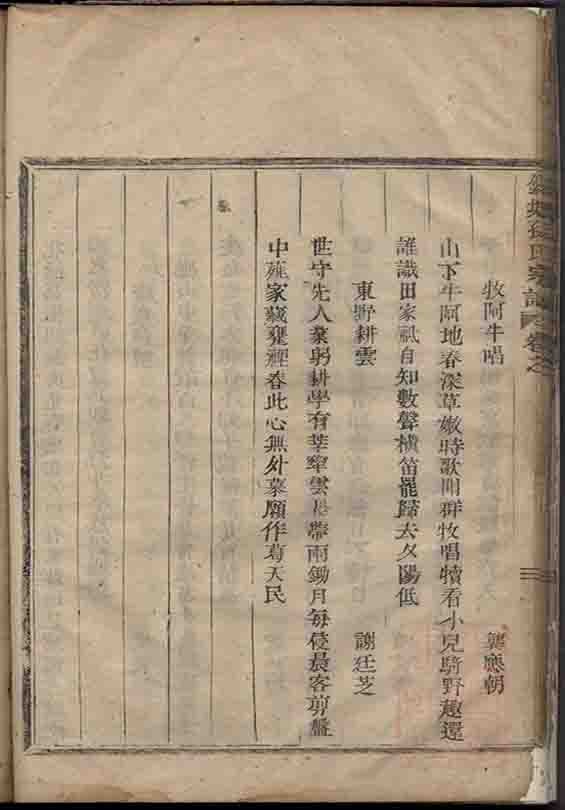 氏宗譜 卷之
牧阿牛唱 龔應朝
山下牛阿地春深草嫩時歌聞群牧唱犢看小兒騎野趣還
誰識田家祇自知數聲橫笛罷歸去夕陽低
東野耕雲 謝廷芝
世守先人業躬耕學有莘犂雲 帶雨鋤月每侵晨客剪盤
中薤家藏甕裡春此心無外慕願作葛天民